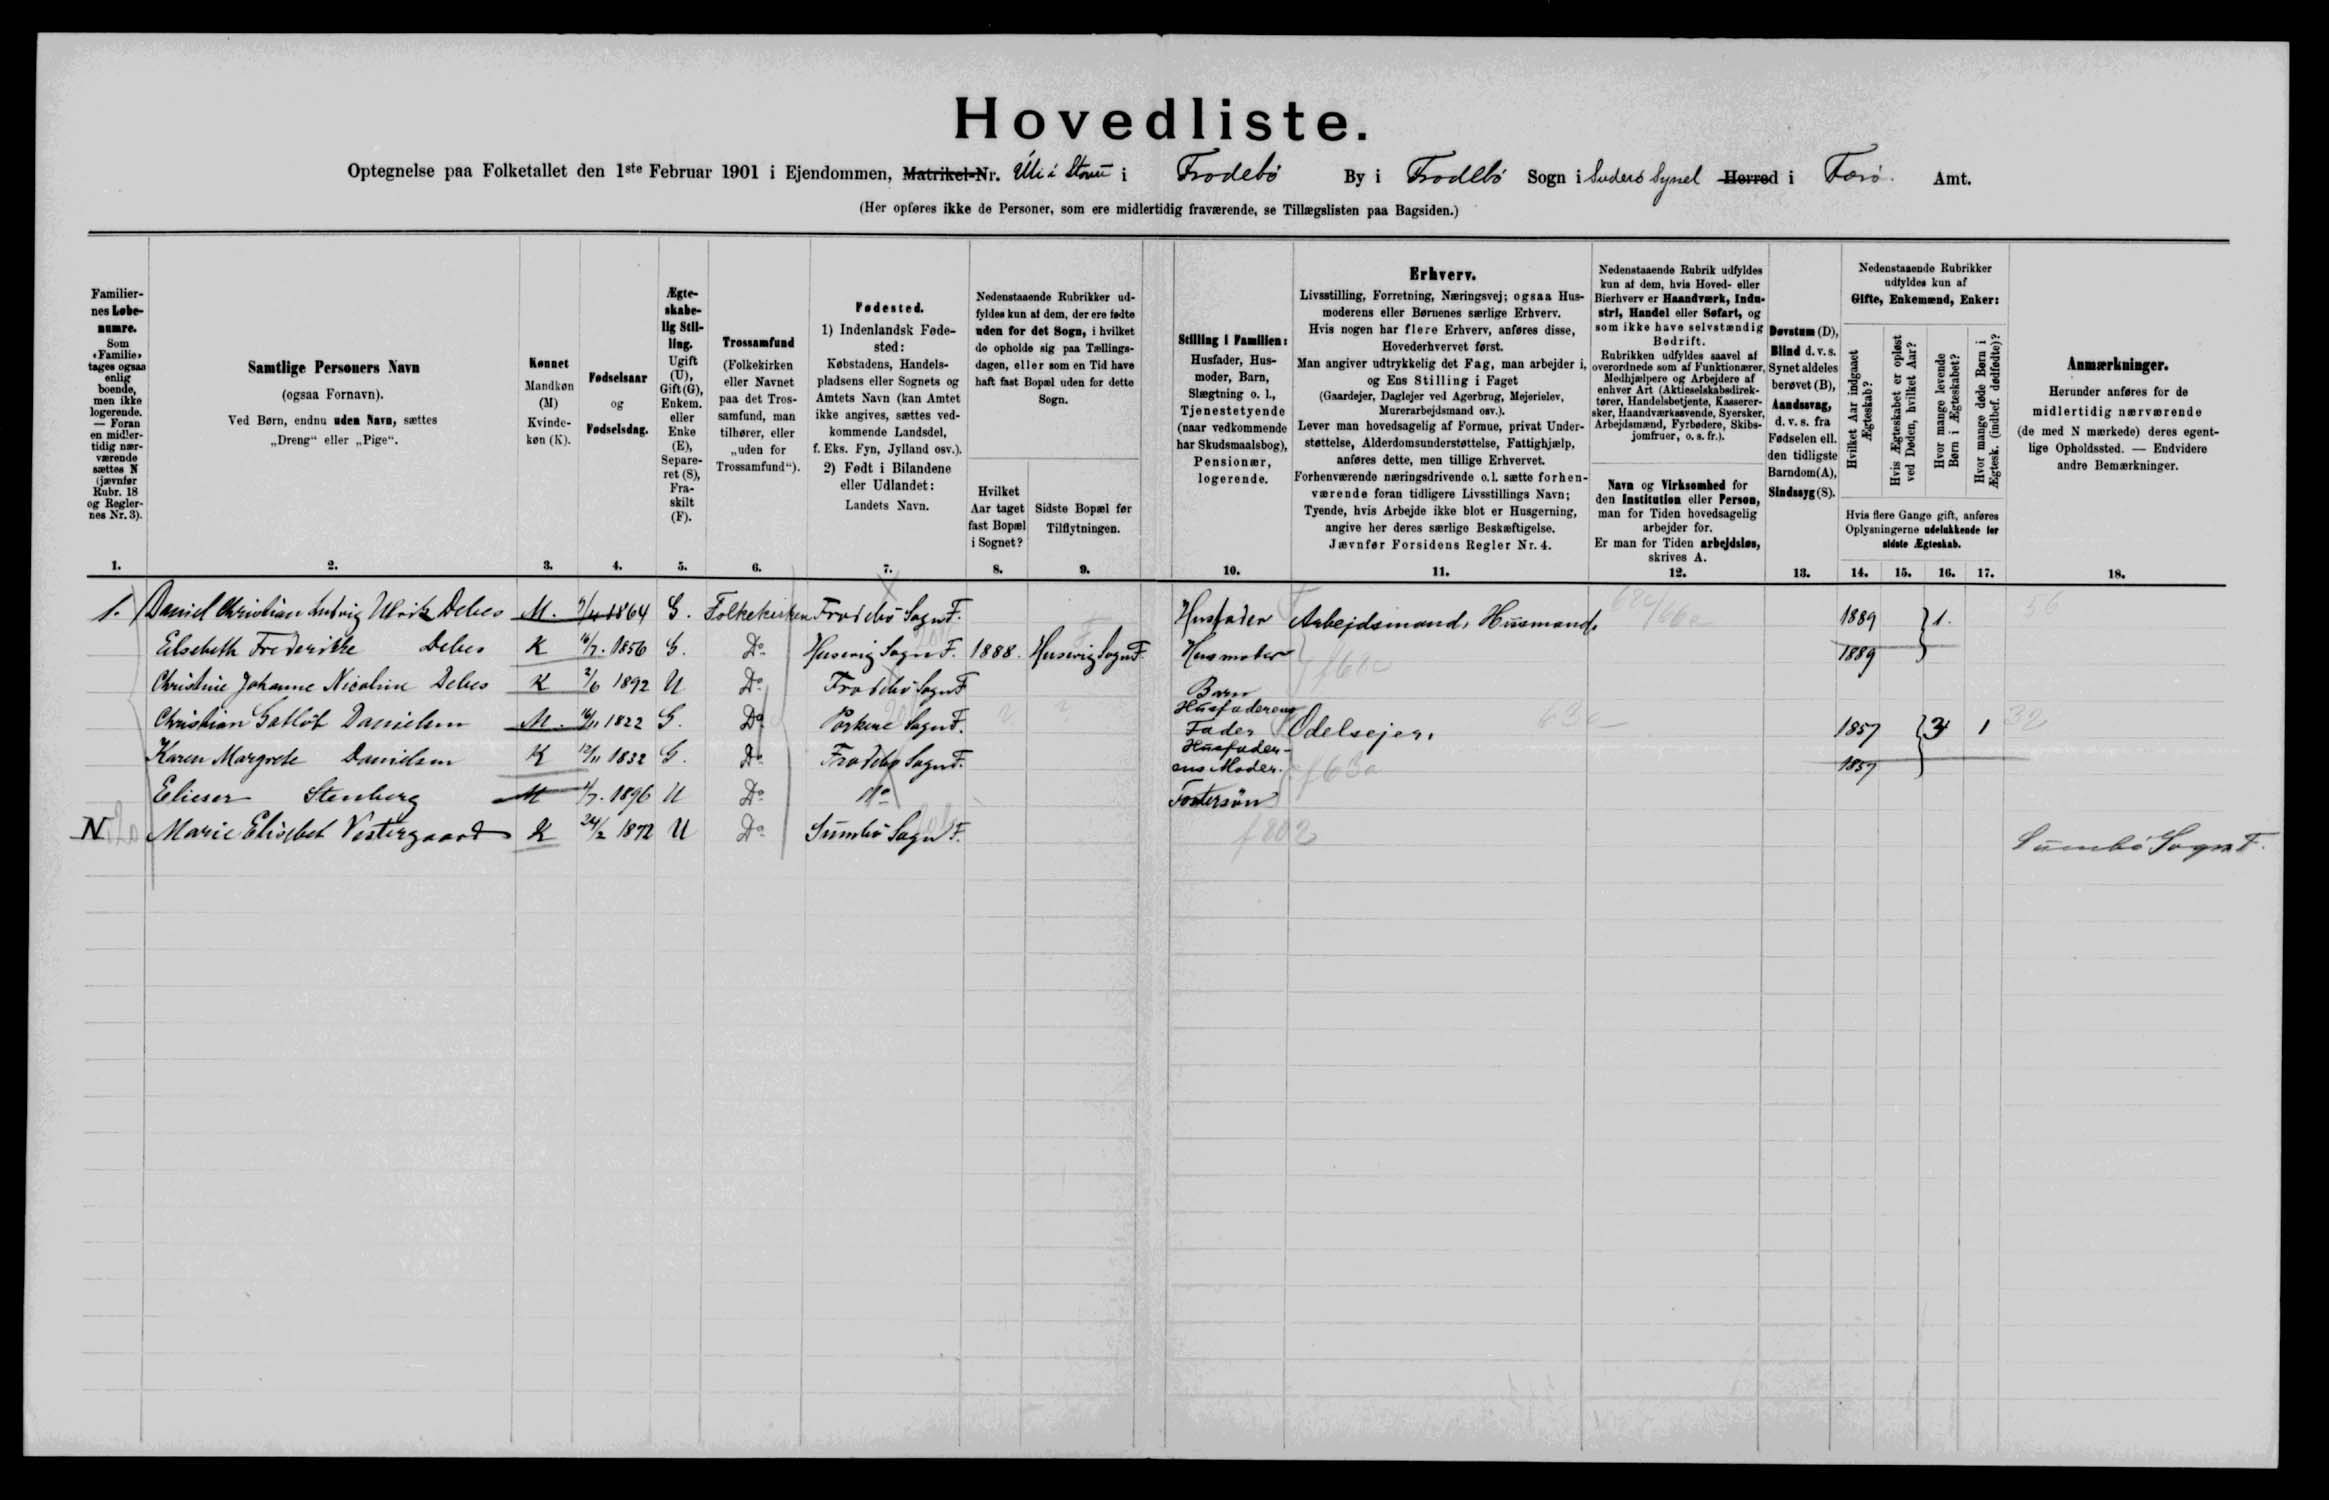 Hovedliste.
Optegnelse paa Folketallet den 1ste Februar 1901 i Ejendommen, Matrikel-Nr. Úti i Stovu i Frodebö By i Frodebö Sogn i Suderö Sysel Herred i Færö. Amt.
(Her opføres ikke de Personer, som ere midlertidig fraværende, se Tillægslisten paa Bagsiden.)
Familiernes Løbenumre.
Som «Familie» tages ogsaa enlig boende, men ikke logerende. — Foran en midlertidig nærværende sættes N (jævnfør Rubr. 18 og Reglernes Nr. 3).
Samtlige Personers Navn
(ogsaa Fornavn).
Ved Børn, endnu uden Navn, sættes
„Dreng“ eller „Pige“.
Kønnet
Mandkøn (M) Kvindekøn (K).
Fødselsaar
og
Fødselsdag.
Ægteskabelig Stilling.
Ugift (U), Gift (G), Enkem. eller Enke (E), Separeret (S), Fraskilt (F).
Trossamfund
(Folkekirken eller Navnet paa det Trossamfund, man tilhører, eller „uden for Trossamfund“).
Fødested.
1) Indenlandsk Fødested:
Købstadens, Handelspladsens eller Sognets og Amtets Navn (kan Amtet ikke angives, sættes vedkommende Landsdel, f. Eks. Fyn, Jylland osv.).
2) Født i Bilandene eller Udlandet:
Landets Navn.
Nedenstaaende Rubrikker udfyldes kun af dem, der ere fødte uden for det Sogn, i hvilket de opholde sig paa Tællingsdagen, eller som en Tid have haft fast Bopæl uden for dette Sogn.
Hvilket Aar taget fast Bopæl i Sognet?
Sidste Bopæl før Tilflytningen.
Stilling i Familien:
Husfader, Husmoder, Barn, Slægtning o. l., Tjenestetyende (naar vedkommende har Skudsmaalsbog), Pensionær, logerende.
Erhverv.
Livsstilling, Forretning, Næringsvej; ogsaa Husmoderens eller Børnenes særlige Erhverv.
Hvis nogen har flere Erhverv, anføres disse, Hovederhvervet først.
Man angiver udtrykkelig det Fag, man arbejder i, og Ens Stilling i Faget
(Gaardejer, Daglejer ved Agerbrug, Mejerielev, Murerarbejdsmand osv.).
Lever man hovedsagelig af Formue, privat Understøttelse, Alderdomsunderstøttelse, Fattighjælp, anføres dette, men tillige Erhvervet.
Forhenværende næringsdrivende o. l. sætte forhenværende foran tidligere Livsstillings Navn;
Tyende, hvis Arbejde ikke blot er Husgerning, angive her deres særlige Beskæftigelse.
Jævnfør Forsidens Regler Nr. 4.
Nedenstaaende Rubrik udfyldes kun af dem, hvis Hoved- eller Bierhverv er Haandværk, Industri, Handel eller Søfart, og som ikke have selvstændig Bedrift.
Rubrikken udfyldes saavel af overordnede som af Funktionærer, Medhjælpere og Arbejdere af enhver Art (Aktieselskabsdirektører, Handelsbetjente, Kasserersker, Haandværkssvende, Syersker, Arbejdsmænd, Fyrbødere, Skibsjomfruer, o. s. fr.).
Navn og Virksomhed for den Institution eller Person, man for Tiden hovedsagelig arbejder for.
Er man for Tiden arbejdsløs, skrives A.
Døvstum (D), Blind d. v. s. Synet aldeles berøvet (B), Aandssvag, d. v. s. fra Fødselen ell. den tidligste Barndom (A), Sindssyg (S).
Nedenstaaende Rubrikker udfyldes kun af
Gifte, Enkemænd, Enker:
Hvilket Aar indgaaet Ægteskab?
Hvis Ægteskabet er opløst ved Døden, hvilket Aar?
Hvor mange levende Børn i Ægteskabet?
Hvor mange døde Børn i Ægtesk. (indbef. dødfødte)?
Hvis flere Gange gift, anføres Oplysningerne udelukkende for sidste Ægteskab.
Anmærkninger.
Herunder anføres for de midlertidig nærværende (de med N mærkede) deres egentlige Opholdssted. — Endvidere andre Bemærkninger.
1. 2. 3. 4. 5. 6. 7. 8. 9. 10. 11. 12. 13. 14. 15. 16. 17. 18.
1. Daniel Christian Ludvig Ulrik Debes M. 1864 G. Folkekirken Frodebö Sogn F. Husfader Arbejdsmand, Husmand. 1889 1. 56
Elsebeth Frederikke Debes K 16/7. 1856 G. Do Husevig Sogn F. 1888. Husevig Sogn F. Husmoder 1889
Christine Johanne Nicoline Debes K 2/6 1892 U Do Frodebö Sogn F Barn
Christian Gutlof Danielsen M. 16/11 1822 G. Do Porkere Sogn F. Husfaderens Fader Odelsejer. 1857 3 1 32
Karen Margrete Danielsen K 12/11 1832 G. Do Frodebö Sogn F. Husfaderens Moder. 1857
Elieser Stenberg M 4/7. 1896 U Do Do Fostersön
N Marie Elisebet Vestergaard K 24/2 1872 U Do Sumbö Sogn F. Sumbö Sogn F.